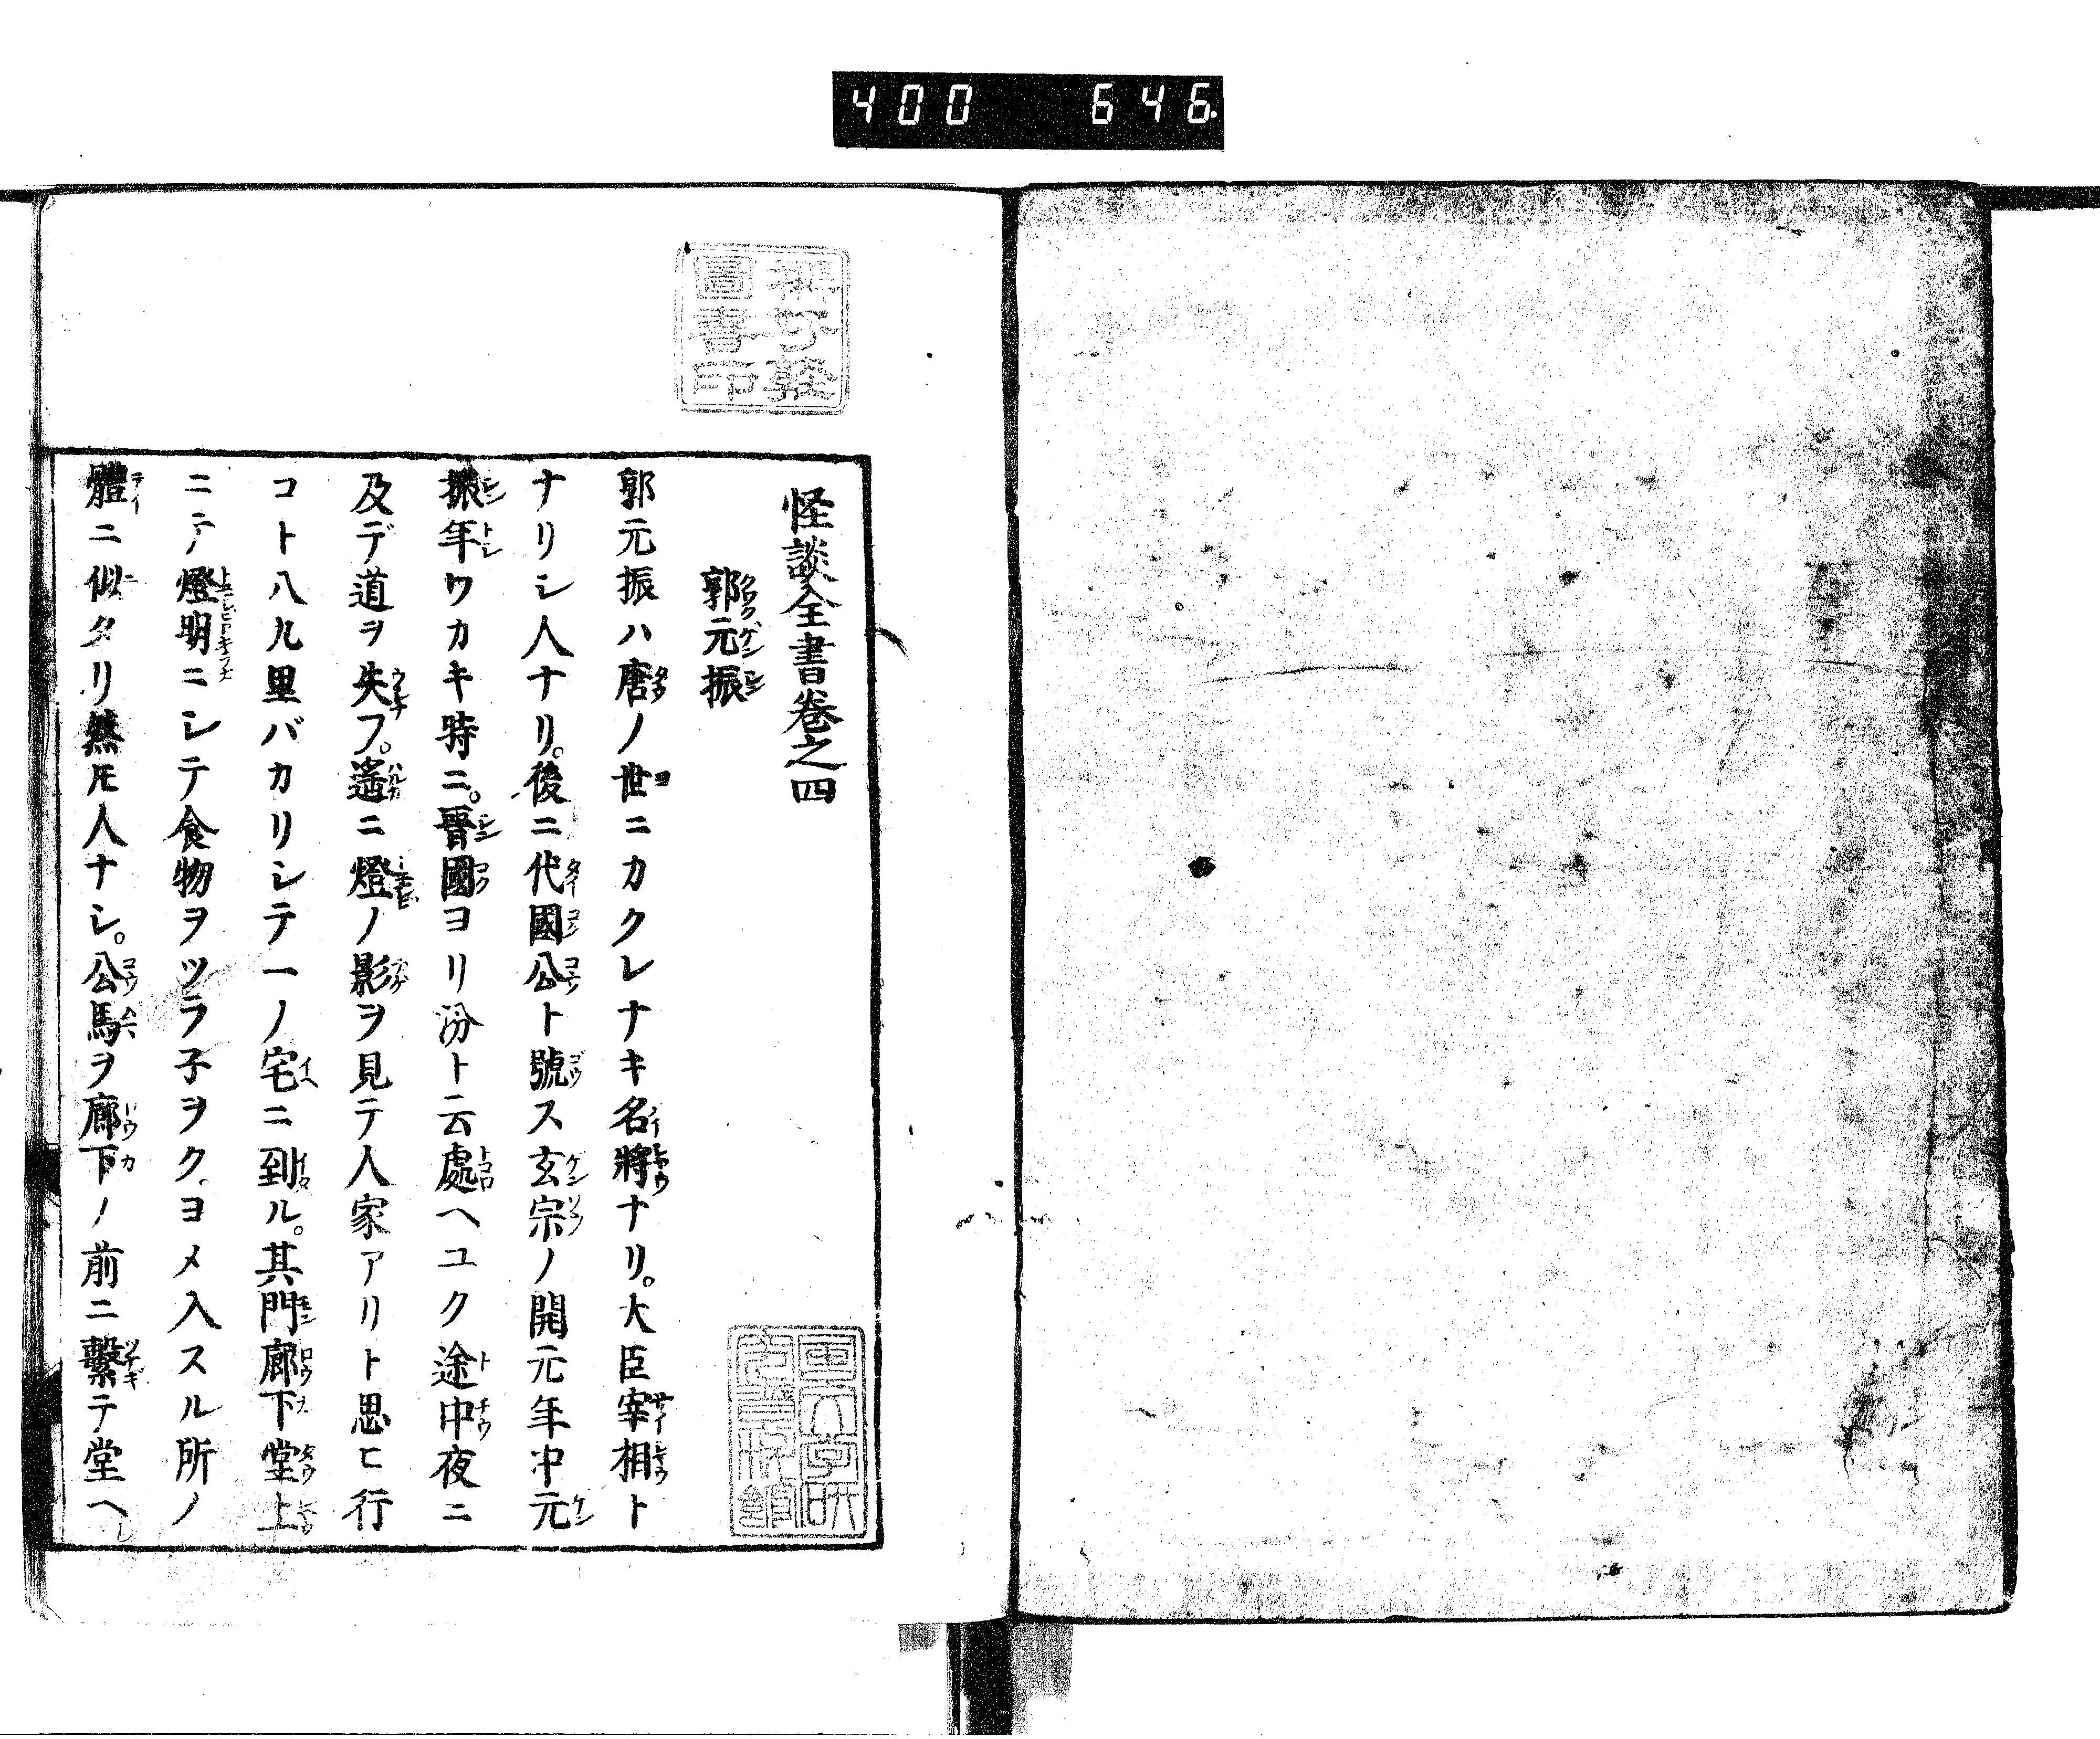 400 646
圖書印
怪談全書卷之四
郭元振
郭元振ハ唐ノ世ニカクレナキ名將ナリ。大臣宰相ト
ナリシ人ナリ。後ニ代國公ト號ス玄宗ノ開元年中元
振年ワカキ時ニ。晉國ヨリ汾ト云處ヘユク途中夜ニ
及デ道ヲ失フ。遙ニ燈ノ影ヲ見テ人家アリト思ヒ行
コト八九里バカリシテ一ノ宅ニ到ル。其門廊下堂上
ニテ燈明ニシテ食物ヲツラ子ヲク。ヨメ入スル所ノ
體ニ似タリ然𪜈人ナシ。公馬ヲ廊下ノ前ニ繫テ堂ヘ